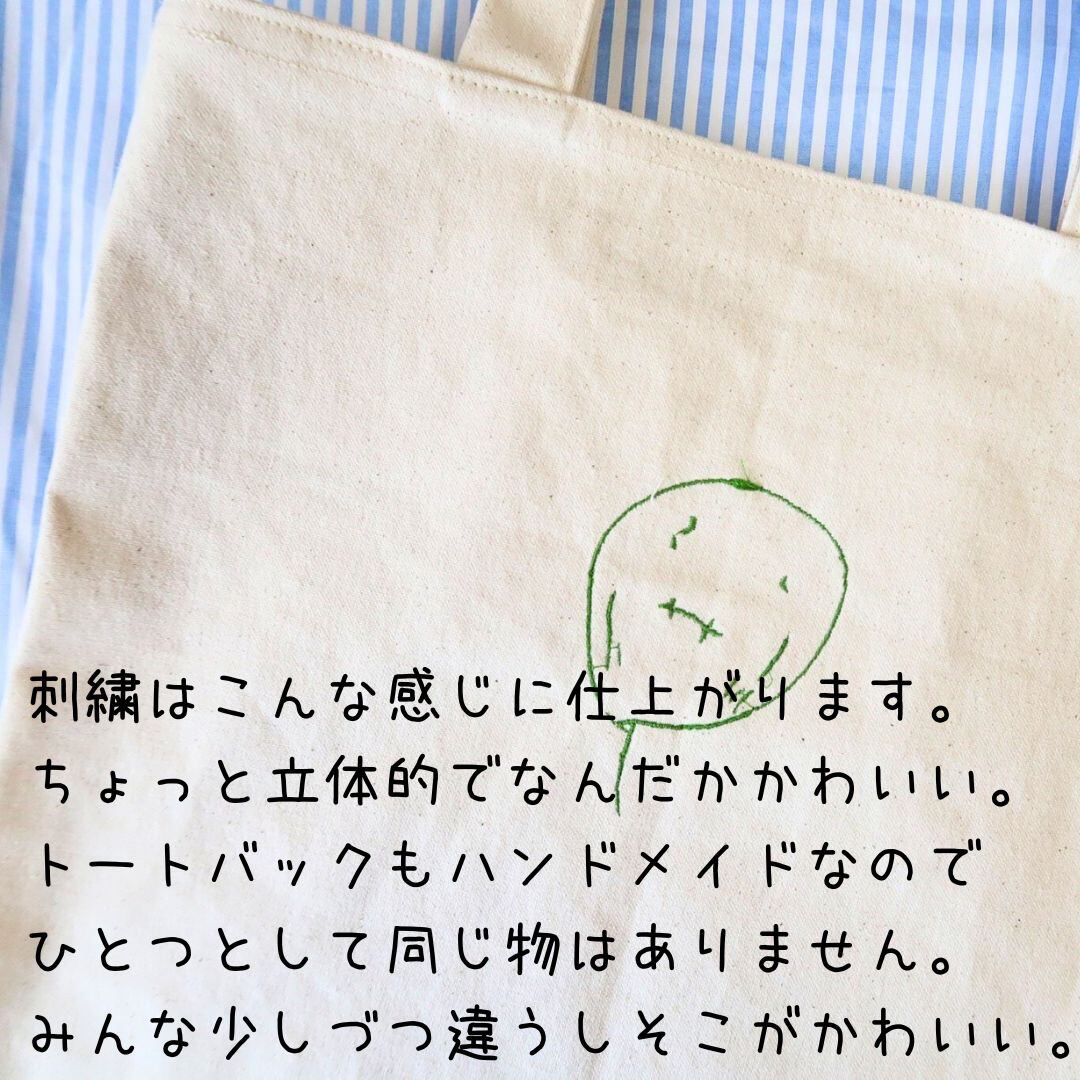 刺繍はこんな感じに仕上がります。
ちょっと立体的でなんだかかわいい。
トートバックもハンドメイドなので
ひとつとして同じ物はありません。
みんな少しづつ違うしそこがかわいい。